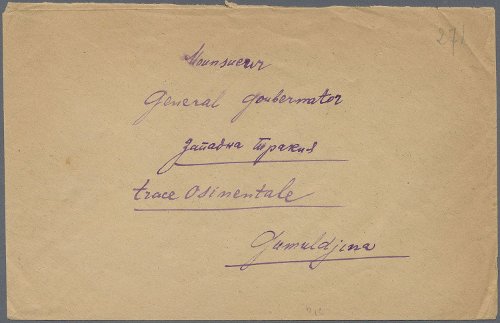 271
Mounsuerr
General Goubernator
Западна Тракия
trace Osinentale
Gumuldjina